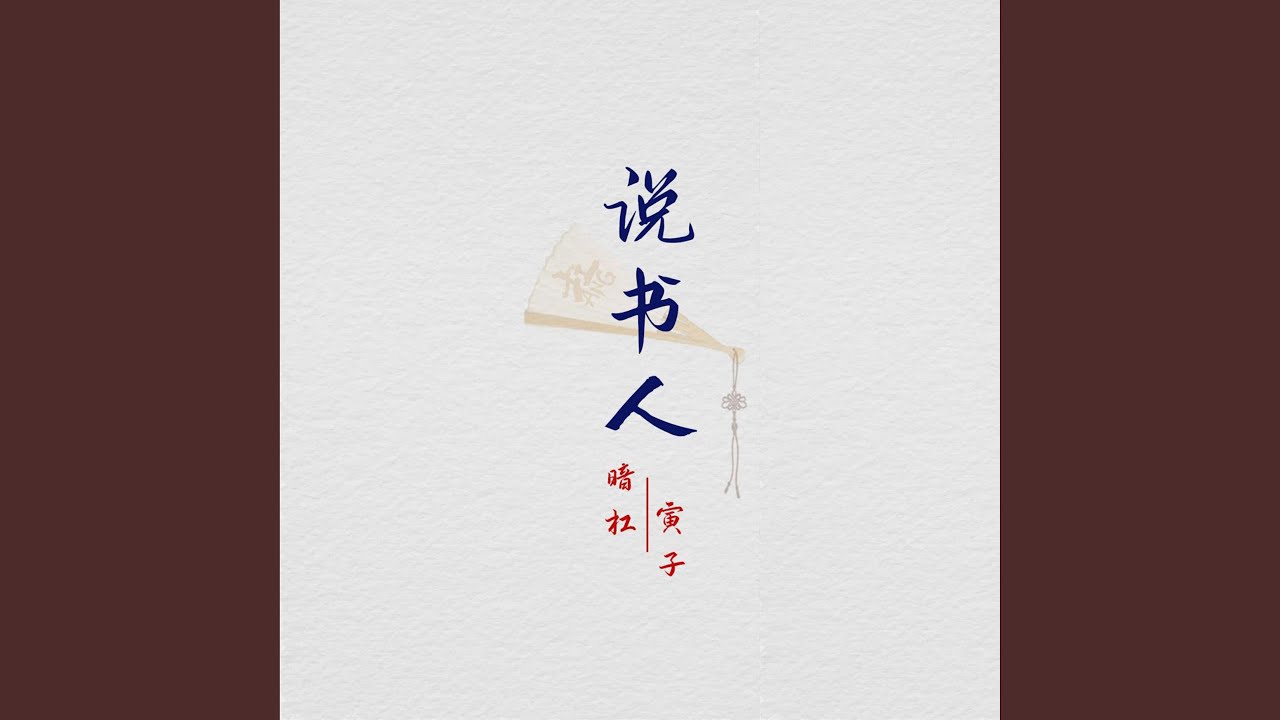 说书人
暗杠
寅子